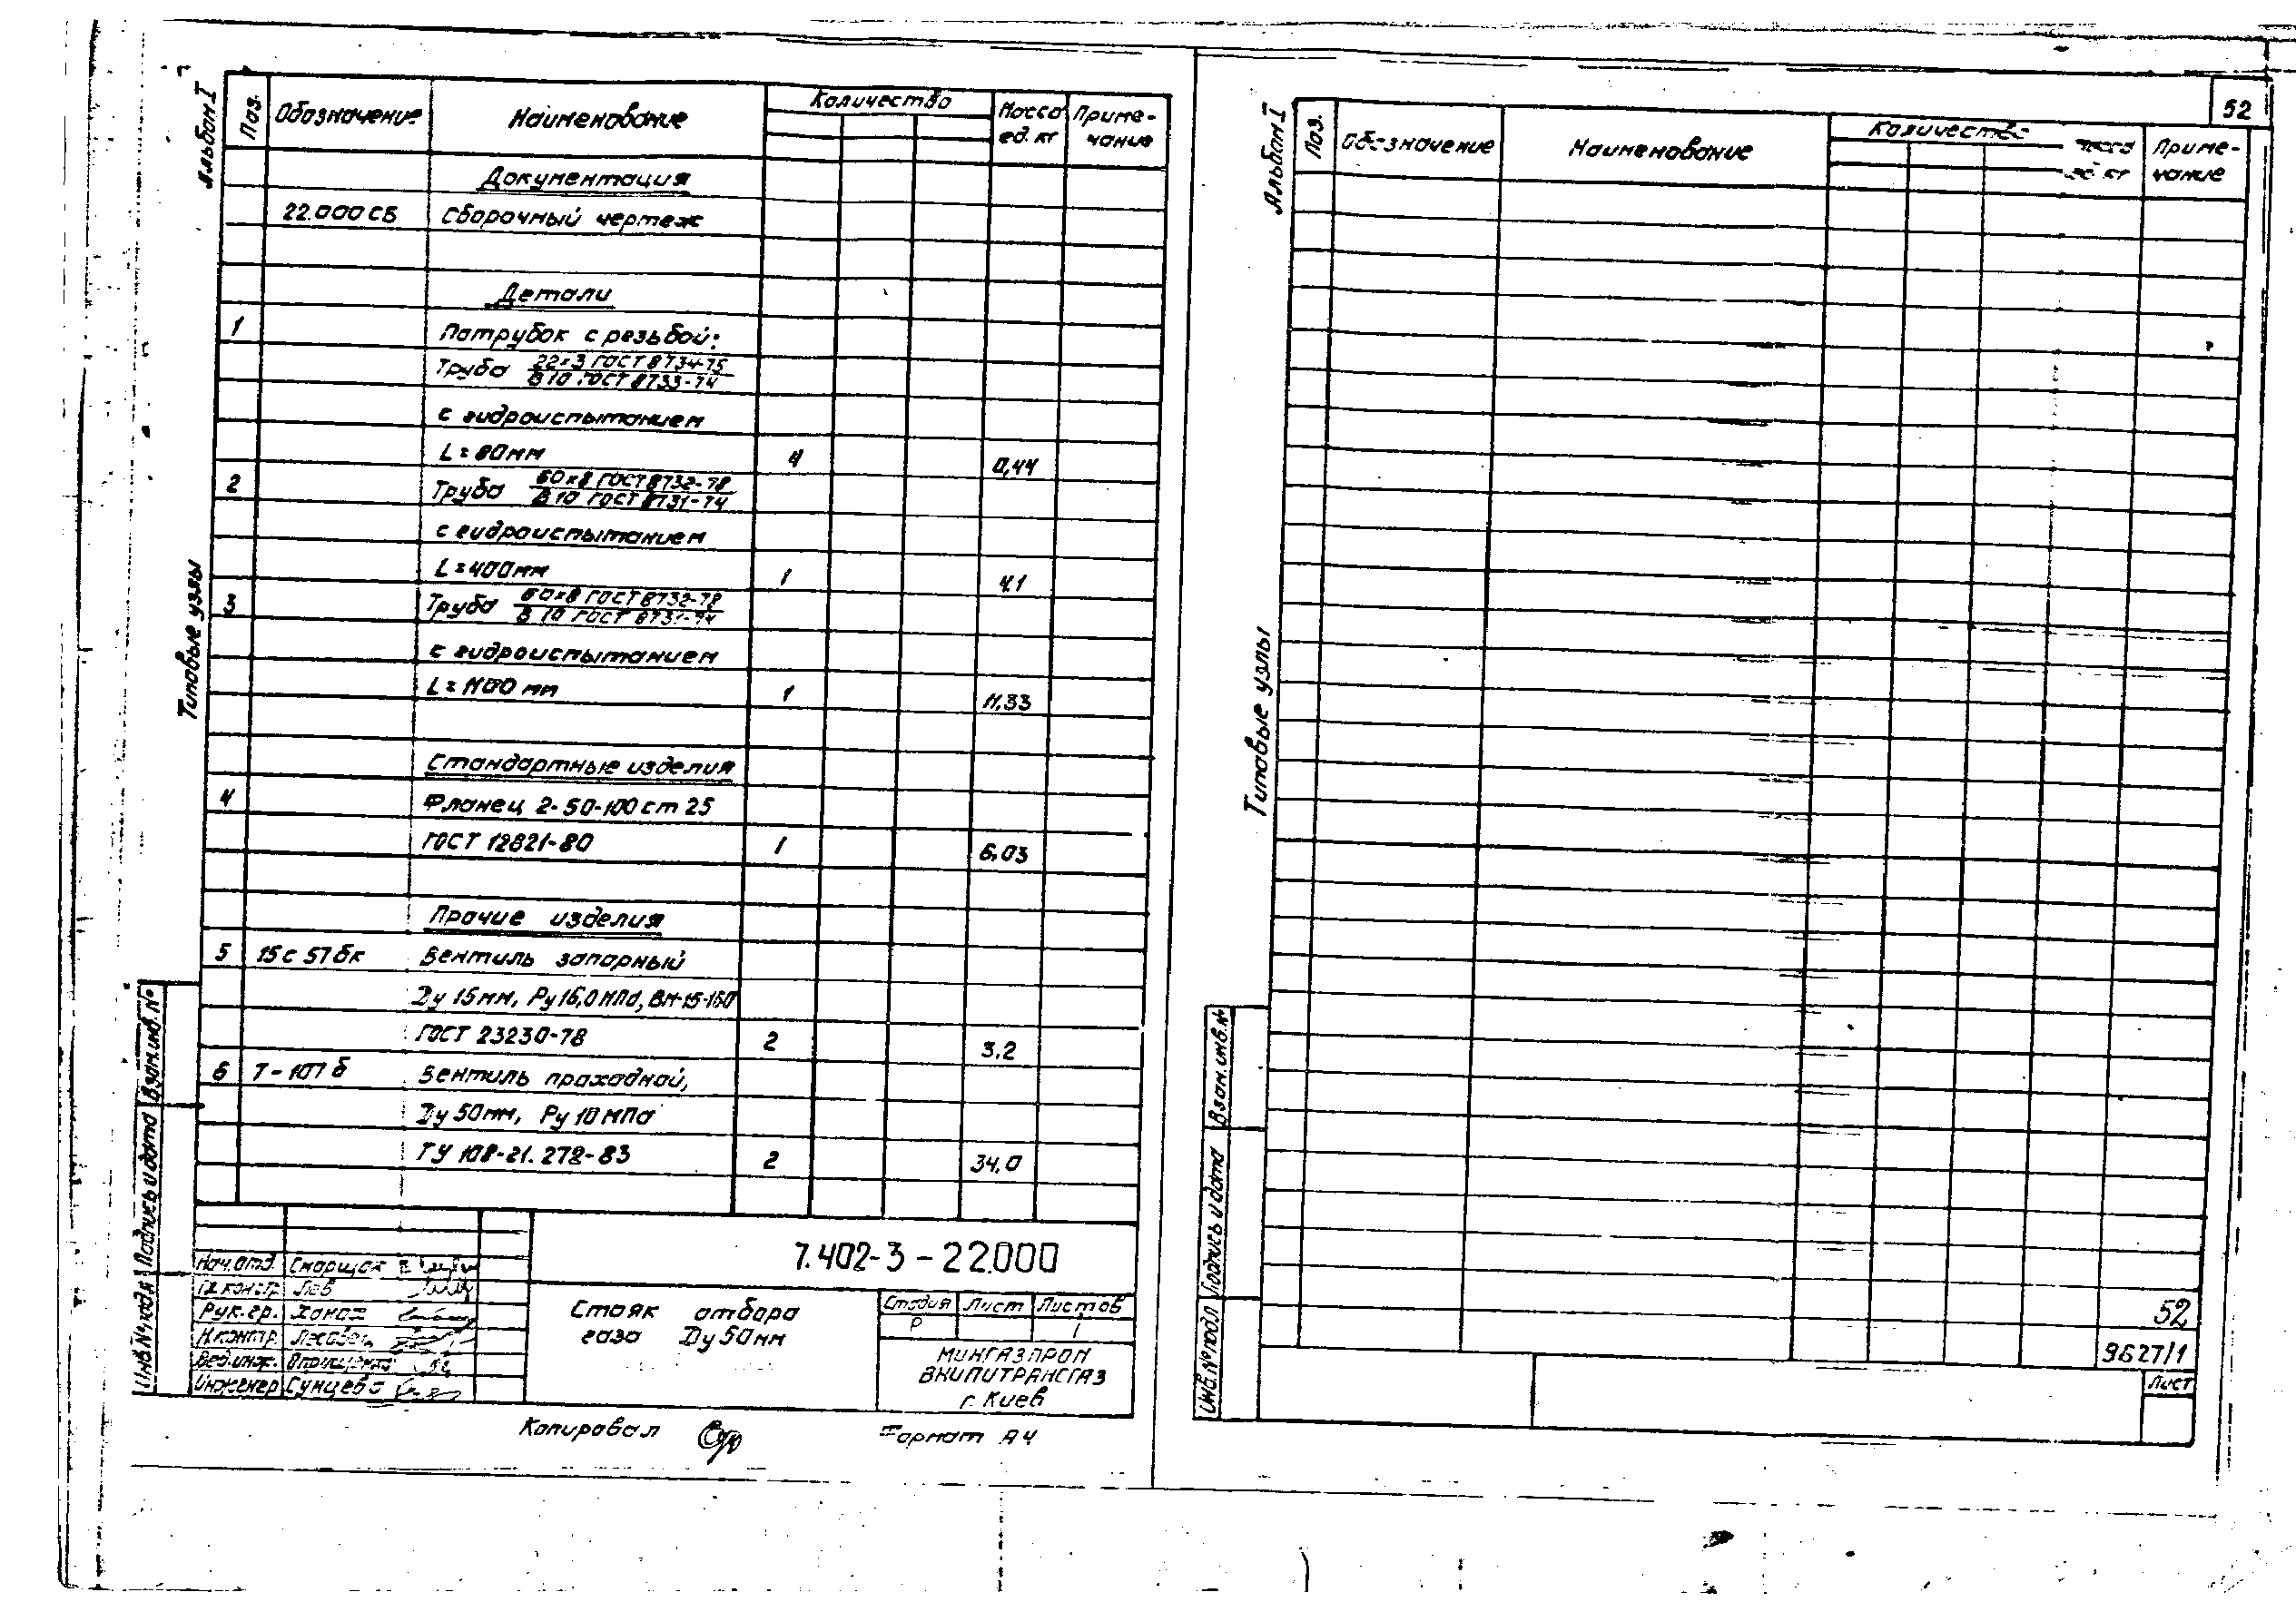 Альбом I
Поз.
Обозначение
Наименование
Количество
Масса ед. кг
Приме-
чание
Документация
22.000 СБ Сборочный чертеж
Детали
1 Патрубок с резьбой:
Труба 22×3 ГОСТ 8734-75
В 10 ГОСТ 8733-74
с гидроиспытанием
L = 80мм 4 0,44
2 Труба 60×8 ГОСТ 8732-78
В 10 ГОСТ 8731-74
с гидроиспытанием
L = 400мм 1 4,1
3 Труба 60×8 ГОСТ 8732-78
В 10 ГОСТ 8731-74
с гидроиспытанием
L = 1100 мм 1 11,33
Стандартные изделия
4 Фланец 2-50-100 ст 25
ГОСТ 12821-80 1 6,03
Прочие изделия
5 15с 57бк Вентиль запорный
Ду 15мм, Ру 16,0 МПа, ВМ-15-160
ГОСТ 23230-78 2 3,2
6 Т-107б Вентиль проходной,
Ду 50мм, Ру 10 МПа
ТУ 108-21.278-83 2 34,0
Типовые узлы
Взам.инв.№
Подпись и дата
Инв.№ подл
7.402-3-22.000
Нач.отд.
Гл.констр. Лев
Рук.гр. Ханах
Н.контр.
Вед.инж.
Инженер Сунцева
Стояк отбора
газа Ду 50мм
Стадия Лист Листов
Р 1
МИНГАЗПРОМ
ВНИПИТРАНСГАЗ
г. Киев
Копировал
Формат А4
52
Альбом I
Поз.
Обозначение
Наименование
Количество
Масса ед. кг
Приме-
чание
Типовые узлы
Взам.инв.№
Подпись и дата
Инв.№ подл
52
9627/1
Лист